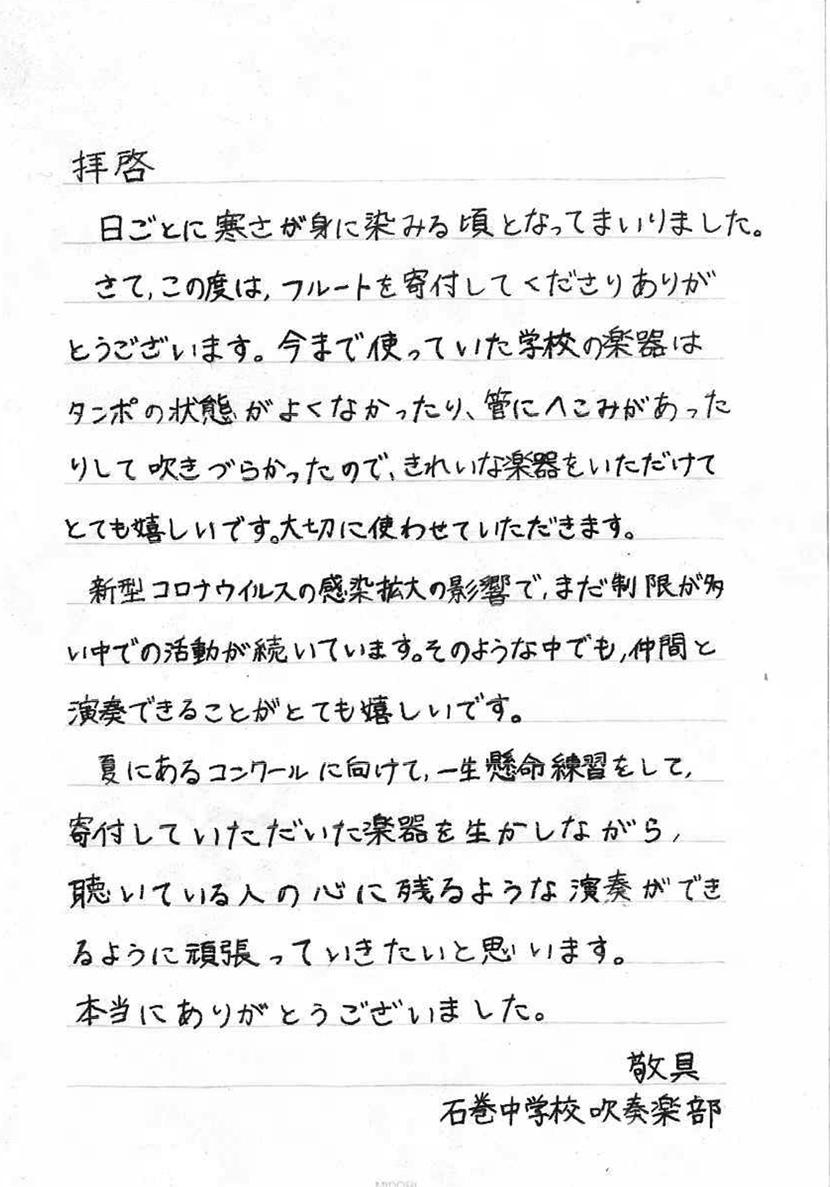 拝啓
日ごとに寒さが身に染みる頃となってまいりました。
さて,この度は,フルートを寄付してくださりありが
とうございます。今まで使っていた学校の楽器は
タンポの状態がよくなかったり、管にへこみがあった
りして吹きづらかったので、きれいな楽器をいただけて
とても嬉しいです。大切に使わせていただきます。
新型コロナウイルスの感染拡大の影響で,まだ制限が多
い中での活動が続いています。そのような中でも,仲間と
演奏できることがとても嬉しいです。
夏にあるコンクールに向けて,一生懸命練習をして,
寄付していただいた楽器を生かしながら,
聴いている人の心に残るような演奏ができ
るように頑張っていきたいと思います。
本当にありがとうございました。
敬具
石巻中学校吹奏楽部